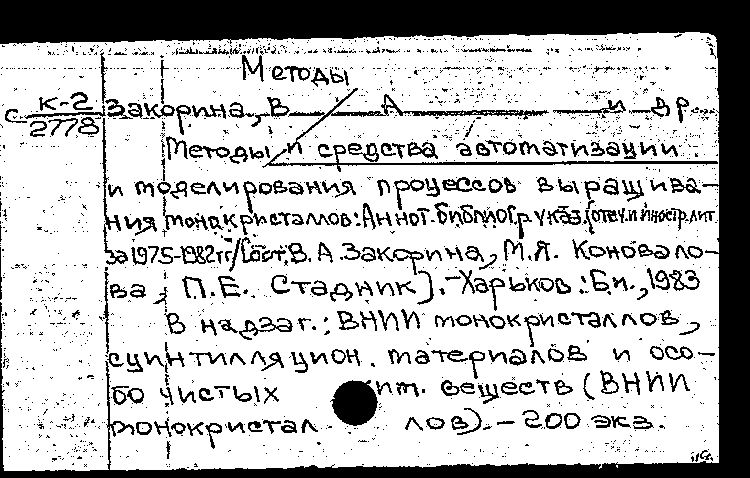 Методы
С К-2
2778
Закорина, В. А. и др.
Методы и средства автоматизации
и моделирования процессов выращива-
ния монокристаллов: Аннот. библиогр. указ. [отеч. и иностр. лит
за 1975-1982 гг/Сост. В.А. Закорина, М.Я. Коновало-
ва, П.Е. Стадник]. - Харьков: Б.и., 1983
В надзаг.: ВНИИ монокристаллов,
сцинтилляцион. материалов и осо-
бо чистых хим. веществ (ВНИИ
монокристаллов). - 200 экз.